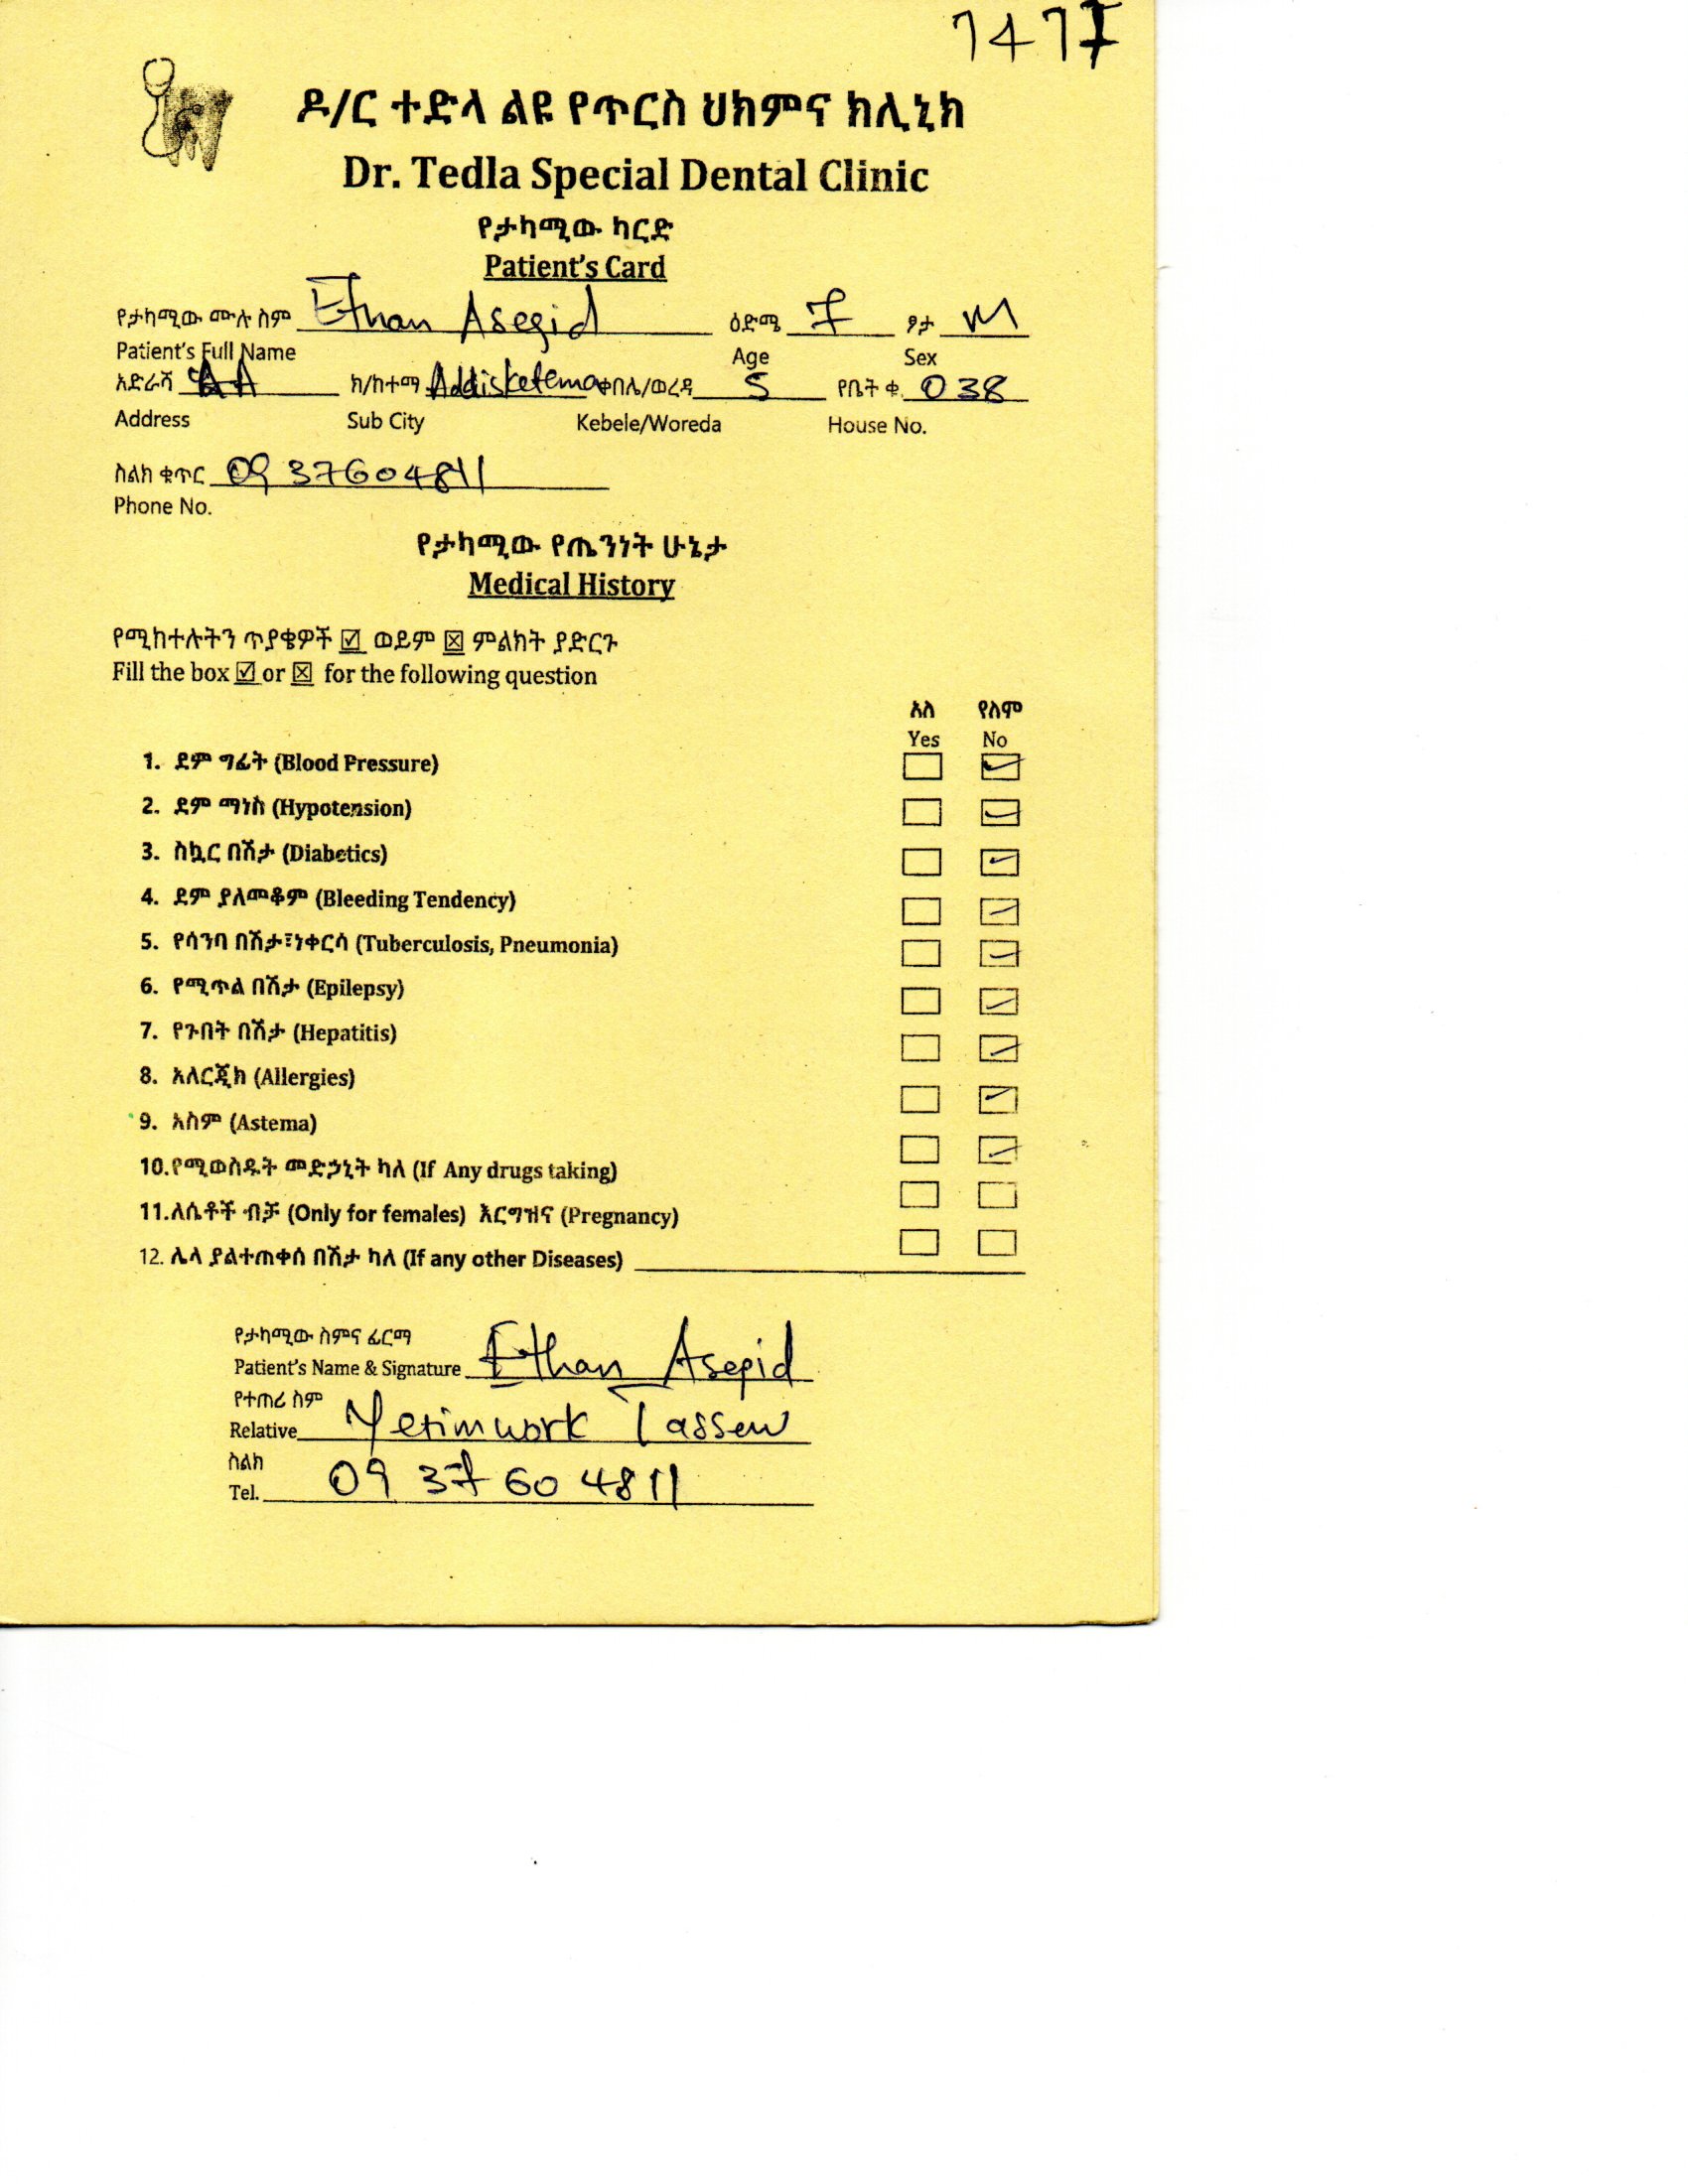 7477
ዶ/ር ተድላ ልዩ የጥርስ ህክምና ክሊኒክ
Dr. Tedla Special Dental Clinic
የታካሚው ካርድ
Patient's Card
የታካሚው ሙሉ ስም Ethan Asegid ዕድሜ 7 ፆታ M
Patient's Full Name Age Sex
አድራሻ AA ክ/ከተማ Addisketema ቀበሌ/ወረዳ 5 የቤት ቁ. 038
Address Sub City Kebele/Woreda House No.
ስልክ ቁጥር 0937604811
Phone No.
የታካሚው የጤንነት ሁኔታ
Medical History
የሚከተሉትን ጥያቄዎች ☑ ወይም ☒ ምልክት ያድርጉ
Fill the box ☑ or ☒ for the following question
አለ የለም
Yes No
1. ደም ግፊት (Blood Pressure)
2. ደም ማነስ (Hypotension)
3. ስኳር በሽታ (Diabetics)
4. ደም ያለመቆም (Bleeding Tendency)
5. የሳንባ በሽታ፣ነቀርሳ (Tuberculosis, Pneumonia)
6. የሚጥል በሽታ (Epilepsy)
7. የጉበት በሽታ (Hepatitis)
8. አለርጂክ (Allergies)
9. አስም (Astema)
10.የሚወስዱት መድኃኒት ካለ (If Any drugs taking)
11.ለሴቶች ብቻ (Only for females) እርግዝና (Pregnancy)
12. ሌላ ያልተጠቀሰ በሽታ ካለ (If any other Diseases)
የታካሚው ስምና ፊርማ
Patient's Name & Signature Ethan Asegid
የተጠሪ ስም
Relative Yerimwork Tassew
ስልክ
Tel. 09 37 60 4811